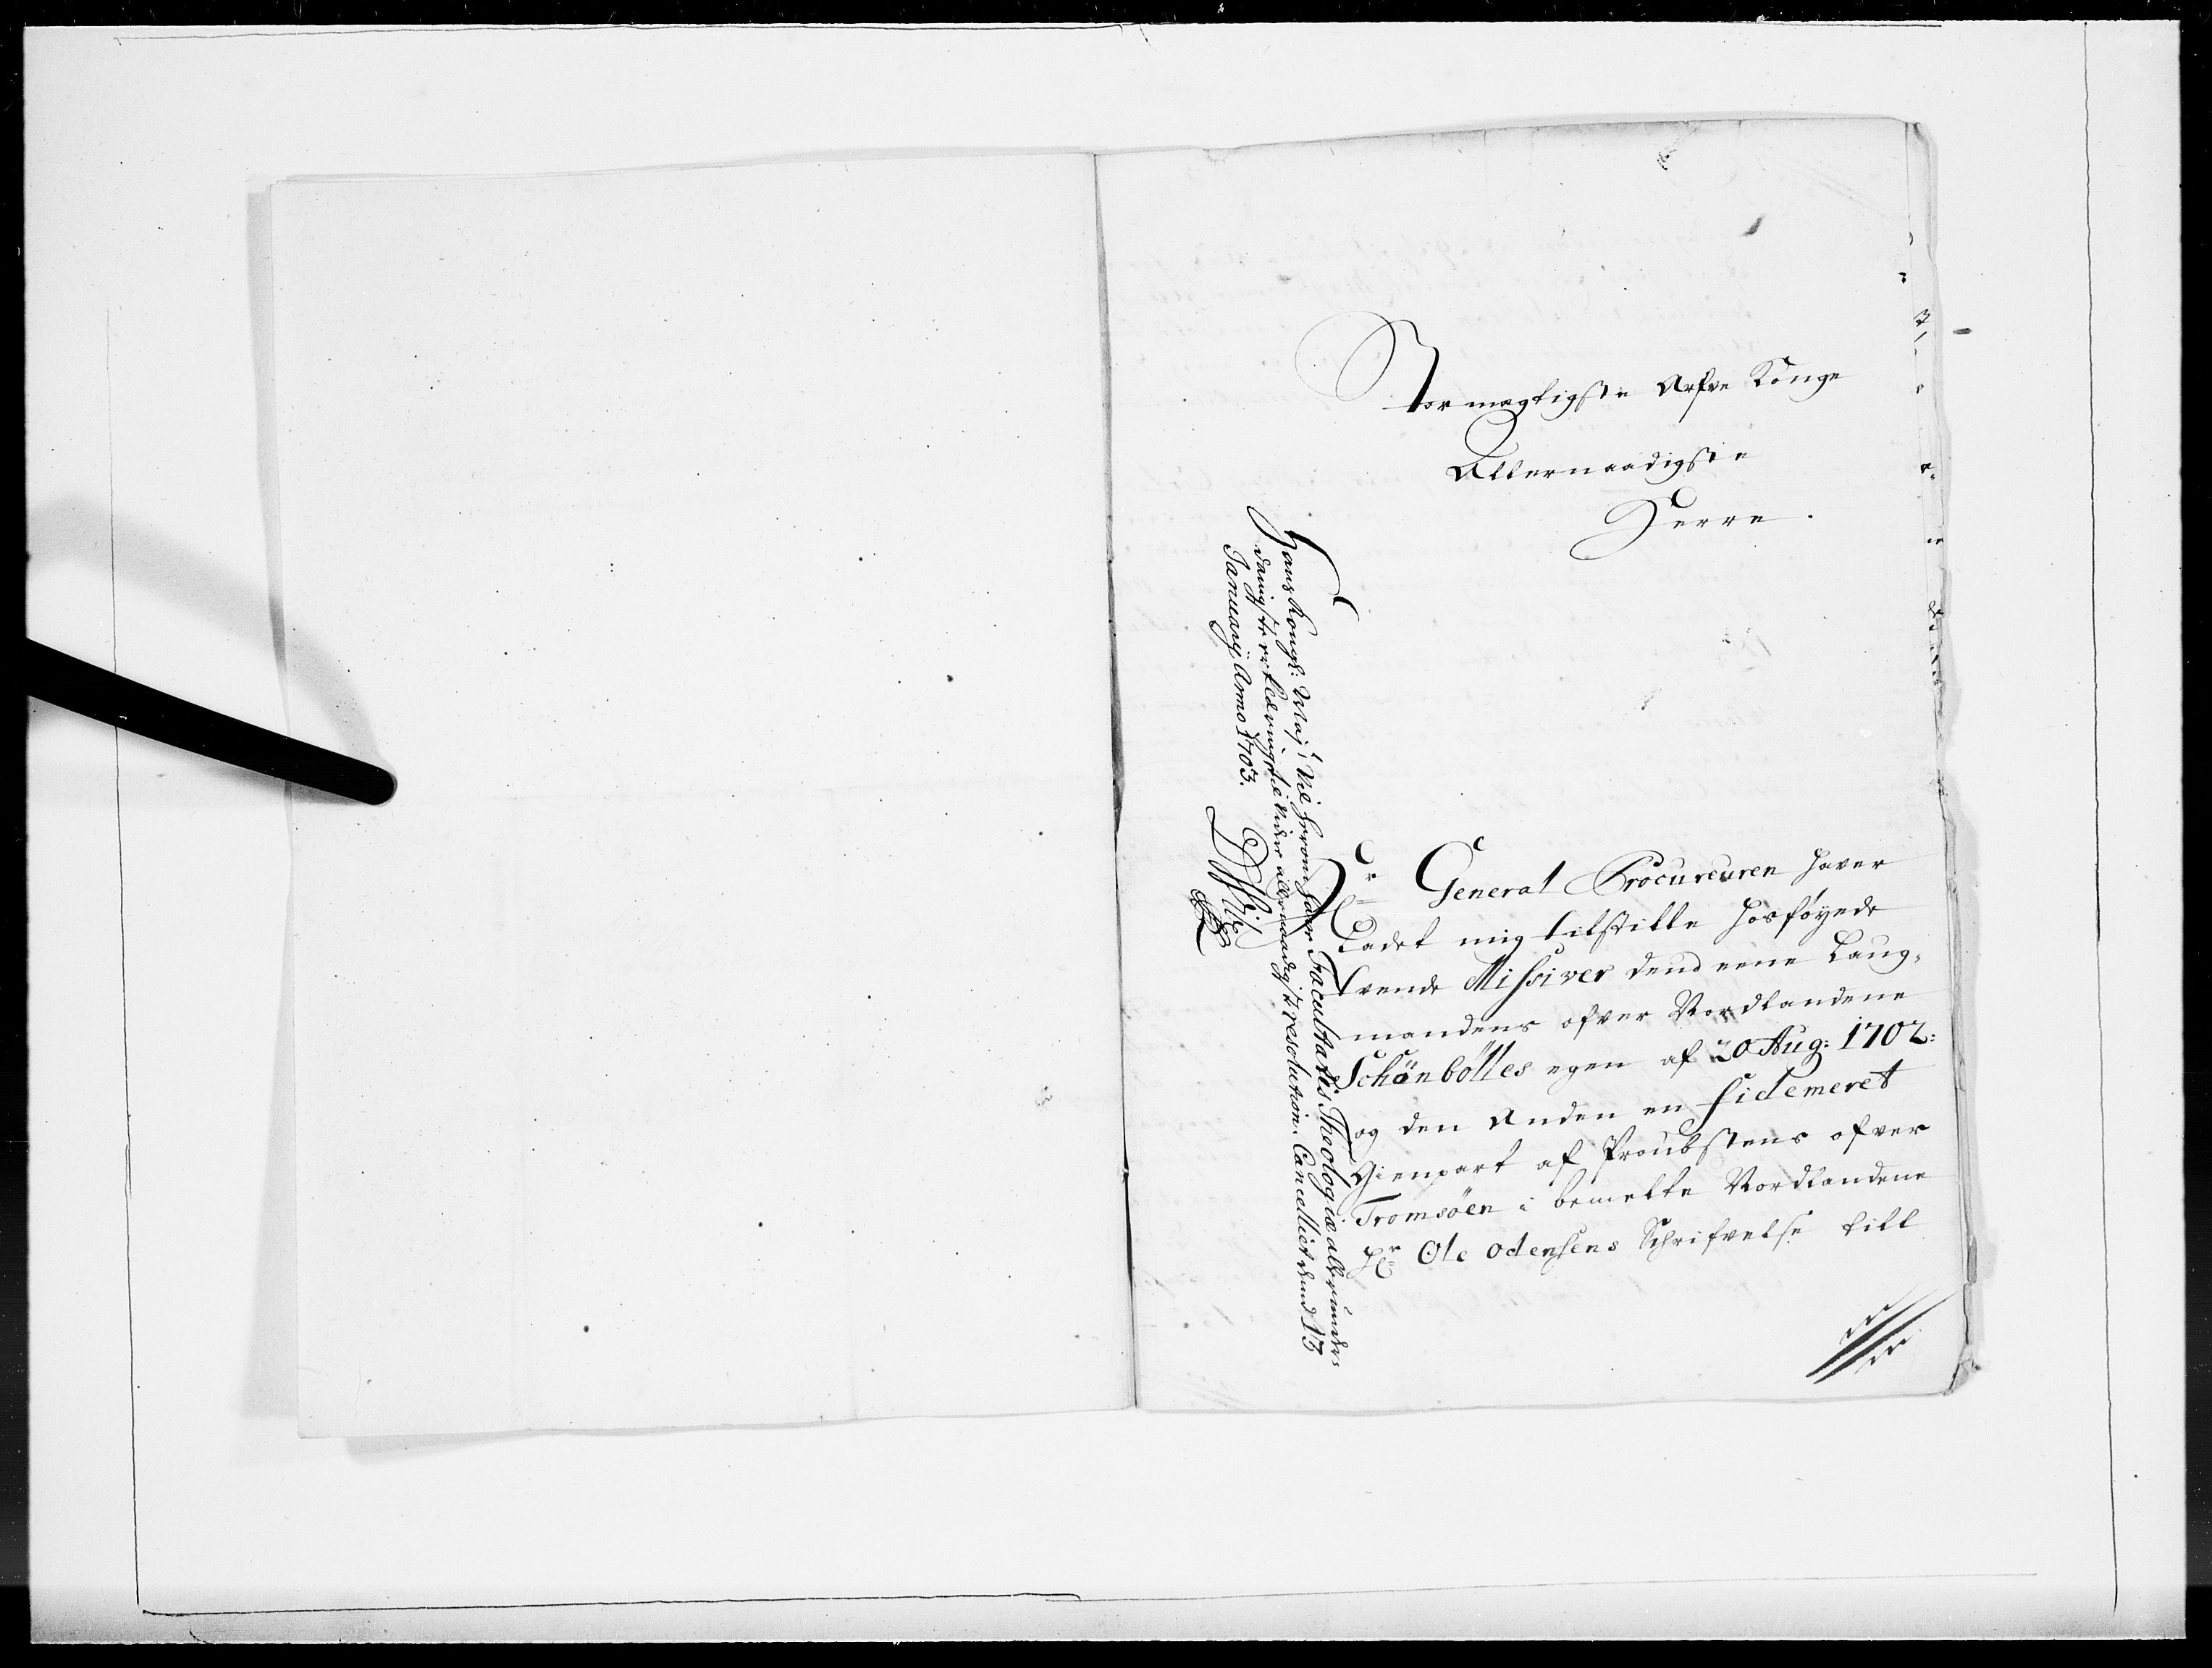 Stormægtigste Arfve Konge
Allernaadigste
Herre.
Hr General Procureuren hafver
Ladet mig tilstille hosføyede
tvende Missiver dend eene Laug-
mandens ofver Nordlandene
Schönbölles egen af 20 Aug: 1702:
og den Anden en fidemeret
Gienpart af Proubstens ofver
Tromsöen i bemelte Nordlandene
Hr Ole Odensens Schrifvelse till
Hans Kongl: Maj: Vil herom hafve Facultatis Theologiæ allerunder-
danigste erklæringe tillige allernaadigste resolution. Cancelliet dend 13
January Anno 1703.